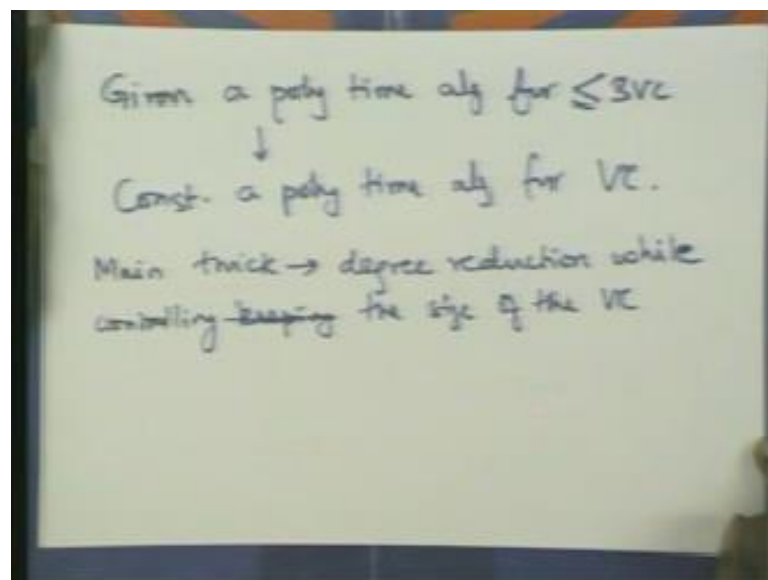 Given a poly time alg for ≤3VC
↓
Const. a poly time alg for VC.
Main trick → degree reduction while
controlling keeping the size of the VC